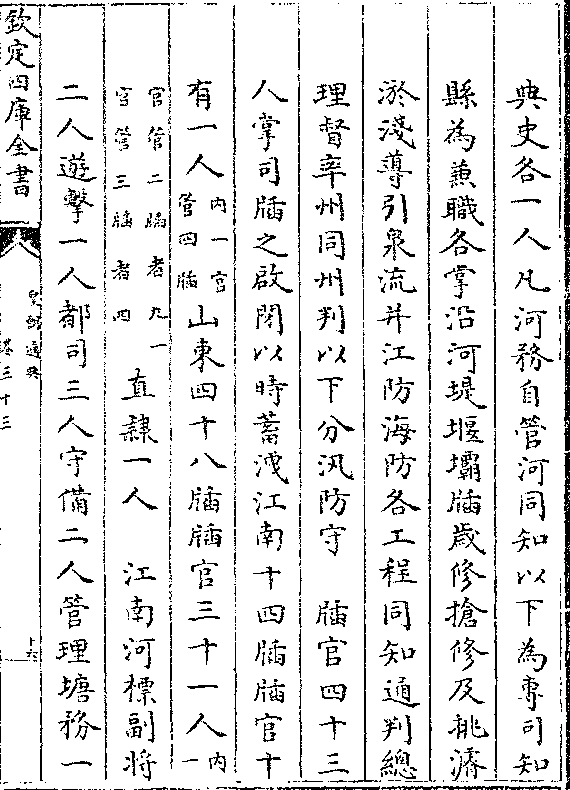 典史各一人凡河務自管河同知以下為專司知
縣為兼職各掌沿河堤堰壩牐歲修搶修及挑濬
淤淺導引泉流并江防海防各工程同知通判總
理督率州同州判以下分汛防守　牐官四十三
人掌司牐之啟閉以時蓄洩江南十四牐牐官十
有一人内一官管四牐山東四十八牐牐官三十一人内一
官管二牐者九一官管三牐者四　直隸一人　江南河標副將
二人遊擊一人都司三人守備二人管理塘務一
欽定四庫全書
皇朝通典
卷三十三
十六